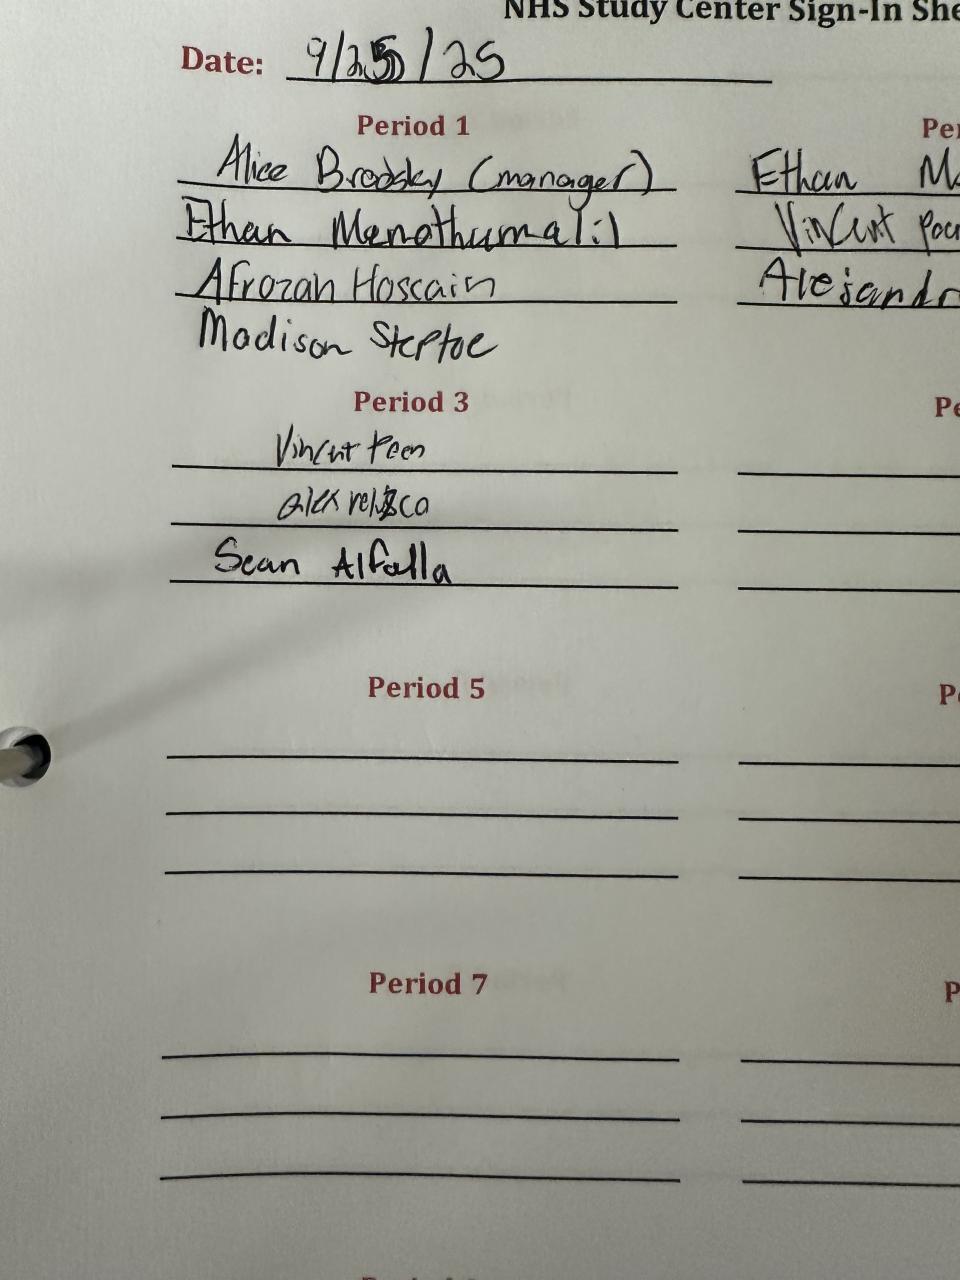 NHS Study Center Sign-In She
Date: 9/25/25
Period 1
Alice Brodsky (manager)
Ethan Manathumalil
Afrozah Hoscain
Madison Steptoe
Per
Ethan Ma
Vincent
Alejandr
Period 3
Vincent
alex
Sean Alfalla
Pe
Period 5
Pe
Period 7
P